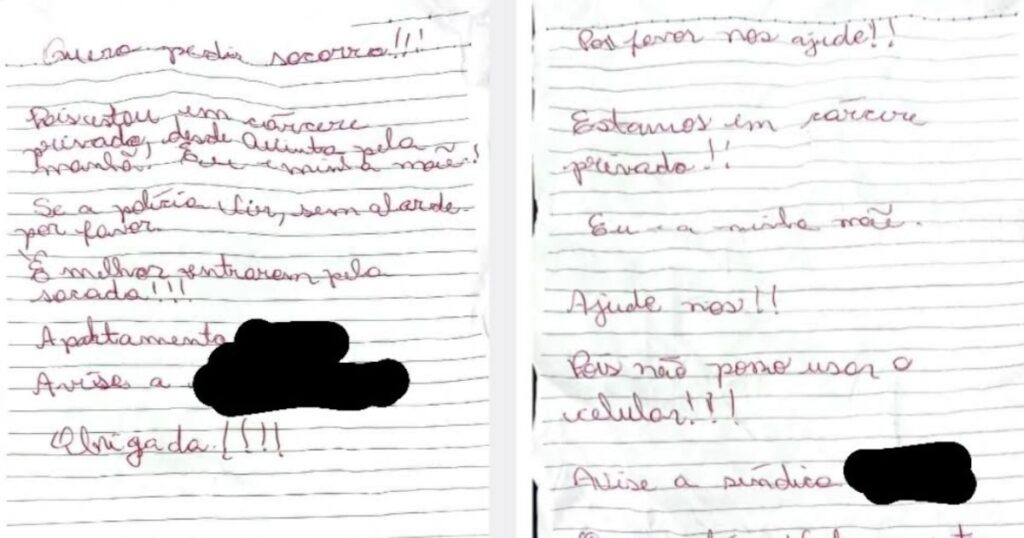 Quero pedir socorro!!!
Pois estou em cárcere
privado, desde Quinta pela
manhã. Eu e minha mãe!!
Se a polícia vir, sem alarde
por favor.
É melhor entrarem pela
sacada!!!
Apartamento
Avise a
Obrigada!!!!
Por favor nos ajude!!
Estamos em cárcere
privado!!
Eu e a minha mãe.
Ajude nos!!
Pois não posso usar o
celular!!!
Avise a síndica